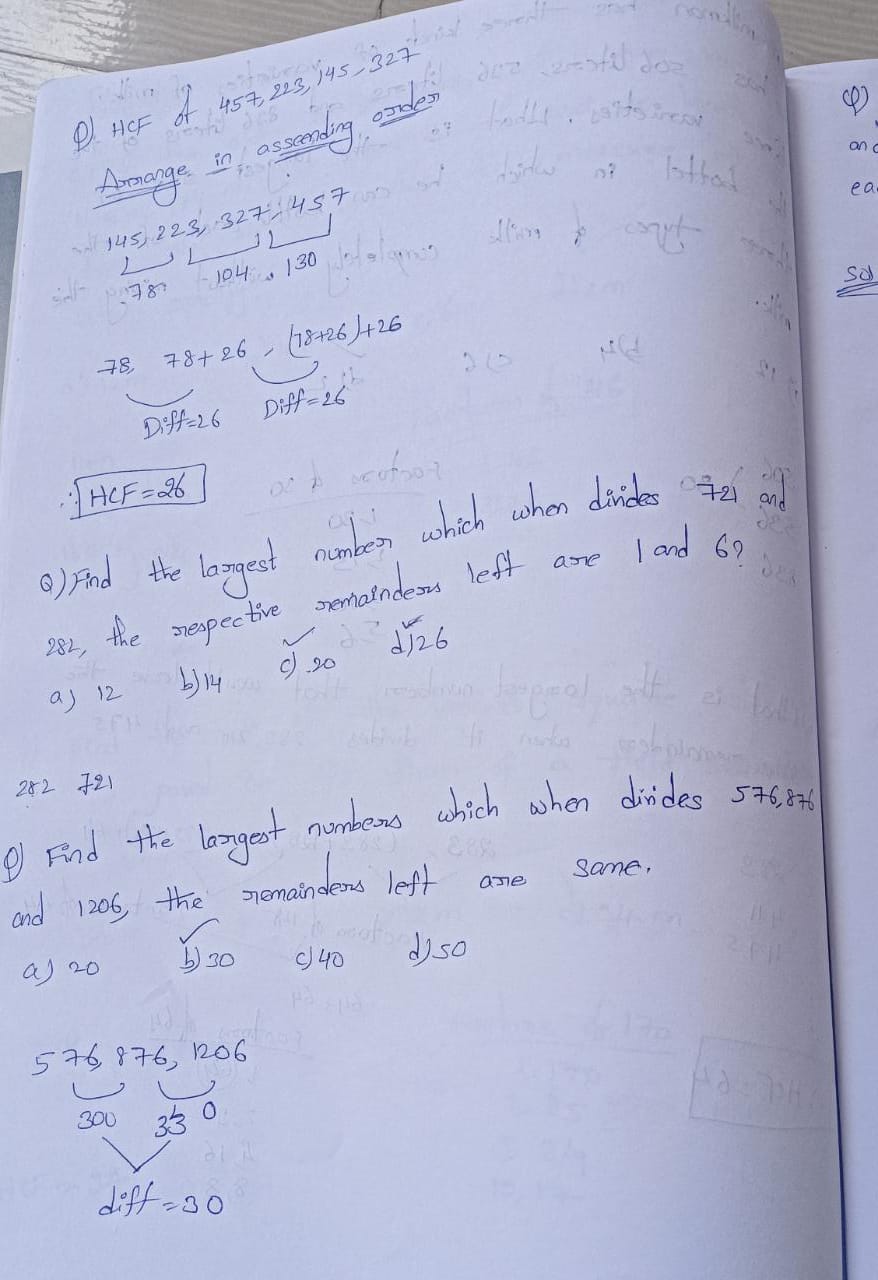 Q) HCF of 457, 223, 145, 327
Arrange in asscending order
145, 223, 327, 457
78 104 130
78, 78+26, (78+26)+26
Diff=26 Diff=26
∴ HCF=26
Q) Find the largest number which when divides 721 and
282, the respective remainders left are 1 and 6?
a) 12 b) 14 c) 20 d) 26
282 721
Q) Find the largest numbers which when divides 576, 876
and 1206, the remainders left are same.
a) 20 b) 30 c) 40 d) 50
576, 876, 1206
300 330
diff = 30
Q)
and
ea
Sol